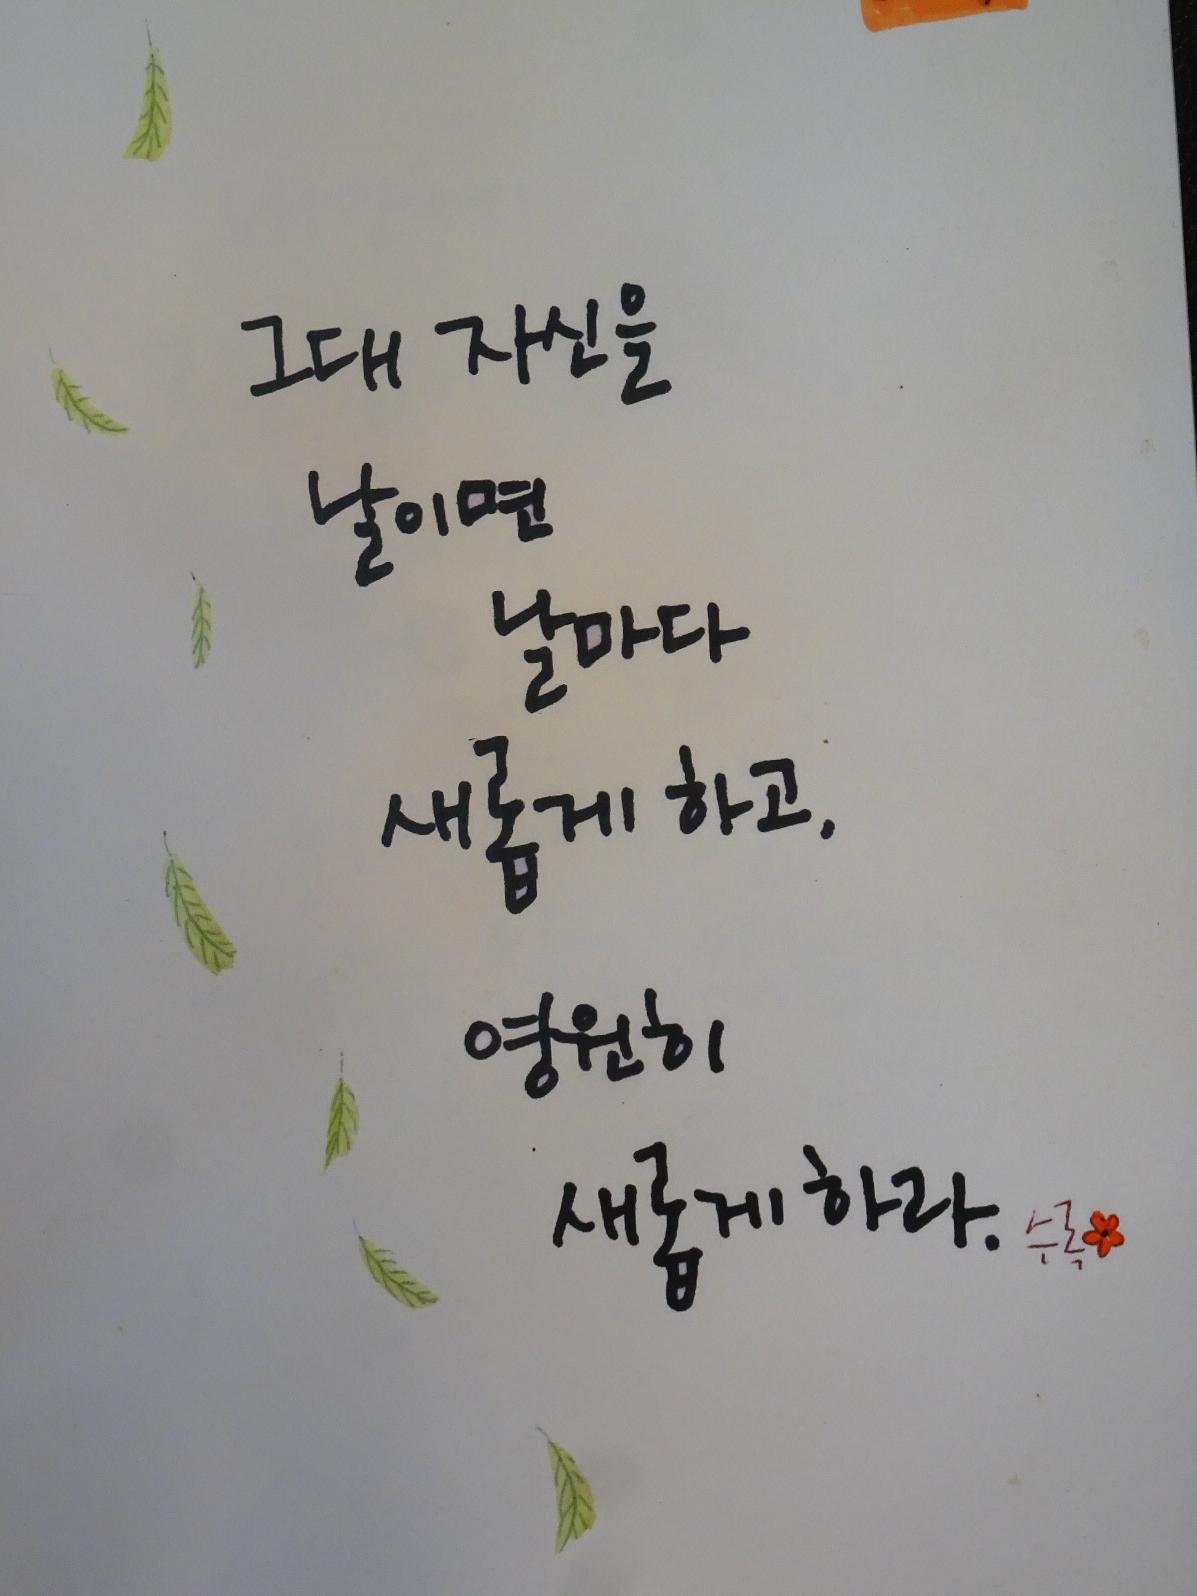 그대 자신을
날이면
날마다
새롭게 하고,
영원히
새롭게 하라. 수록